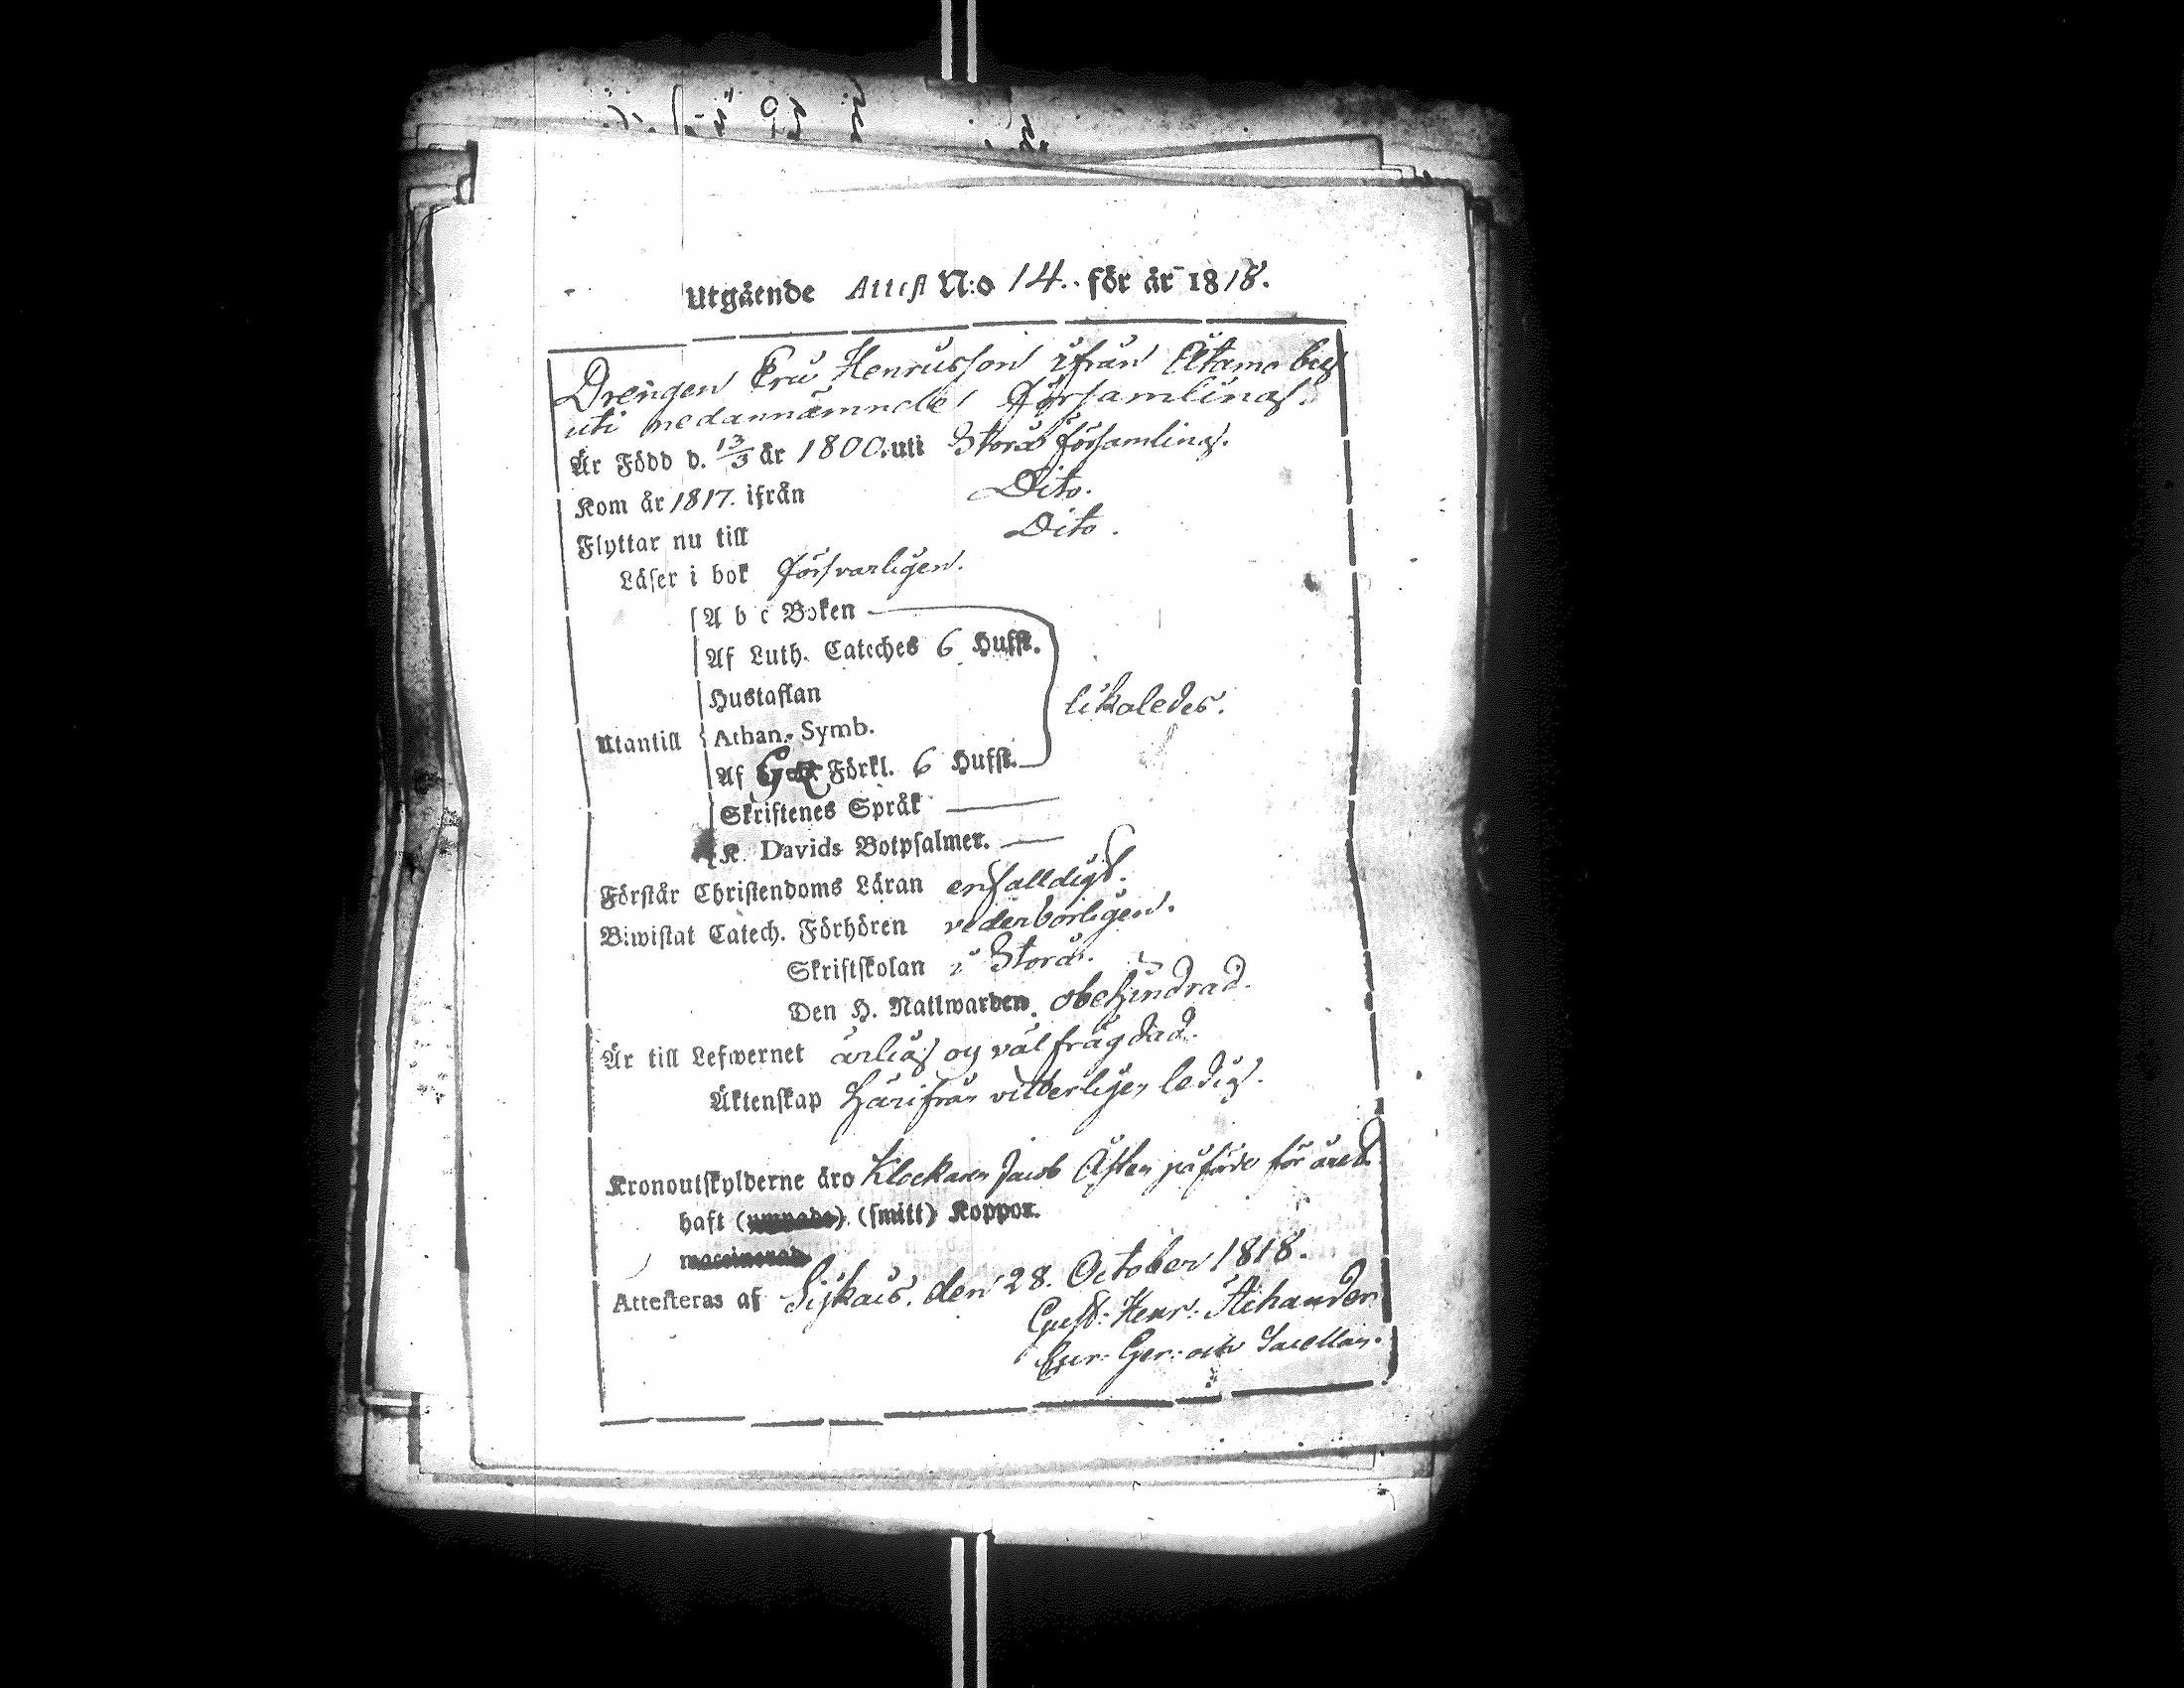 Utgående Attest N:o 14. för år 1818.
Drengen Eric Henricsson ifrån Ätamo by
uti nedannämnde Församling.
Är Född d. 13/3 år 1800. uti Storå församling.
Kom år 1817. ifrån Dito.
Flyttar nu till Dito.
Läser i bok försvarligen.
A b c Boken
Af Luth. Cateches 6 Hufst.
Hustaflan
likaledes.
Utantill Athan. Symb.
Af Förkl. 6 Hufst.
Skriftenes Språk
K. Davids Botpsalmer.
Förstår Christendoms Läran enfalldigt.
Biwistat Catech. Förhören vederbörligen.
Skriftskolan i Storå.
Den H. Nattwarden. obehindrad.
Är till Lefwernet ärlig og väl frägdad.
Äktenskap Härifrån vitterligen ledig.
Kronoutskylderne äro Klockaren Jacob påförde för året.
haft (smitt) Koppor.
Attesteras af den 28. October 1818.
Gust. Henr.